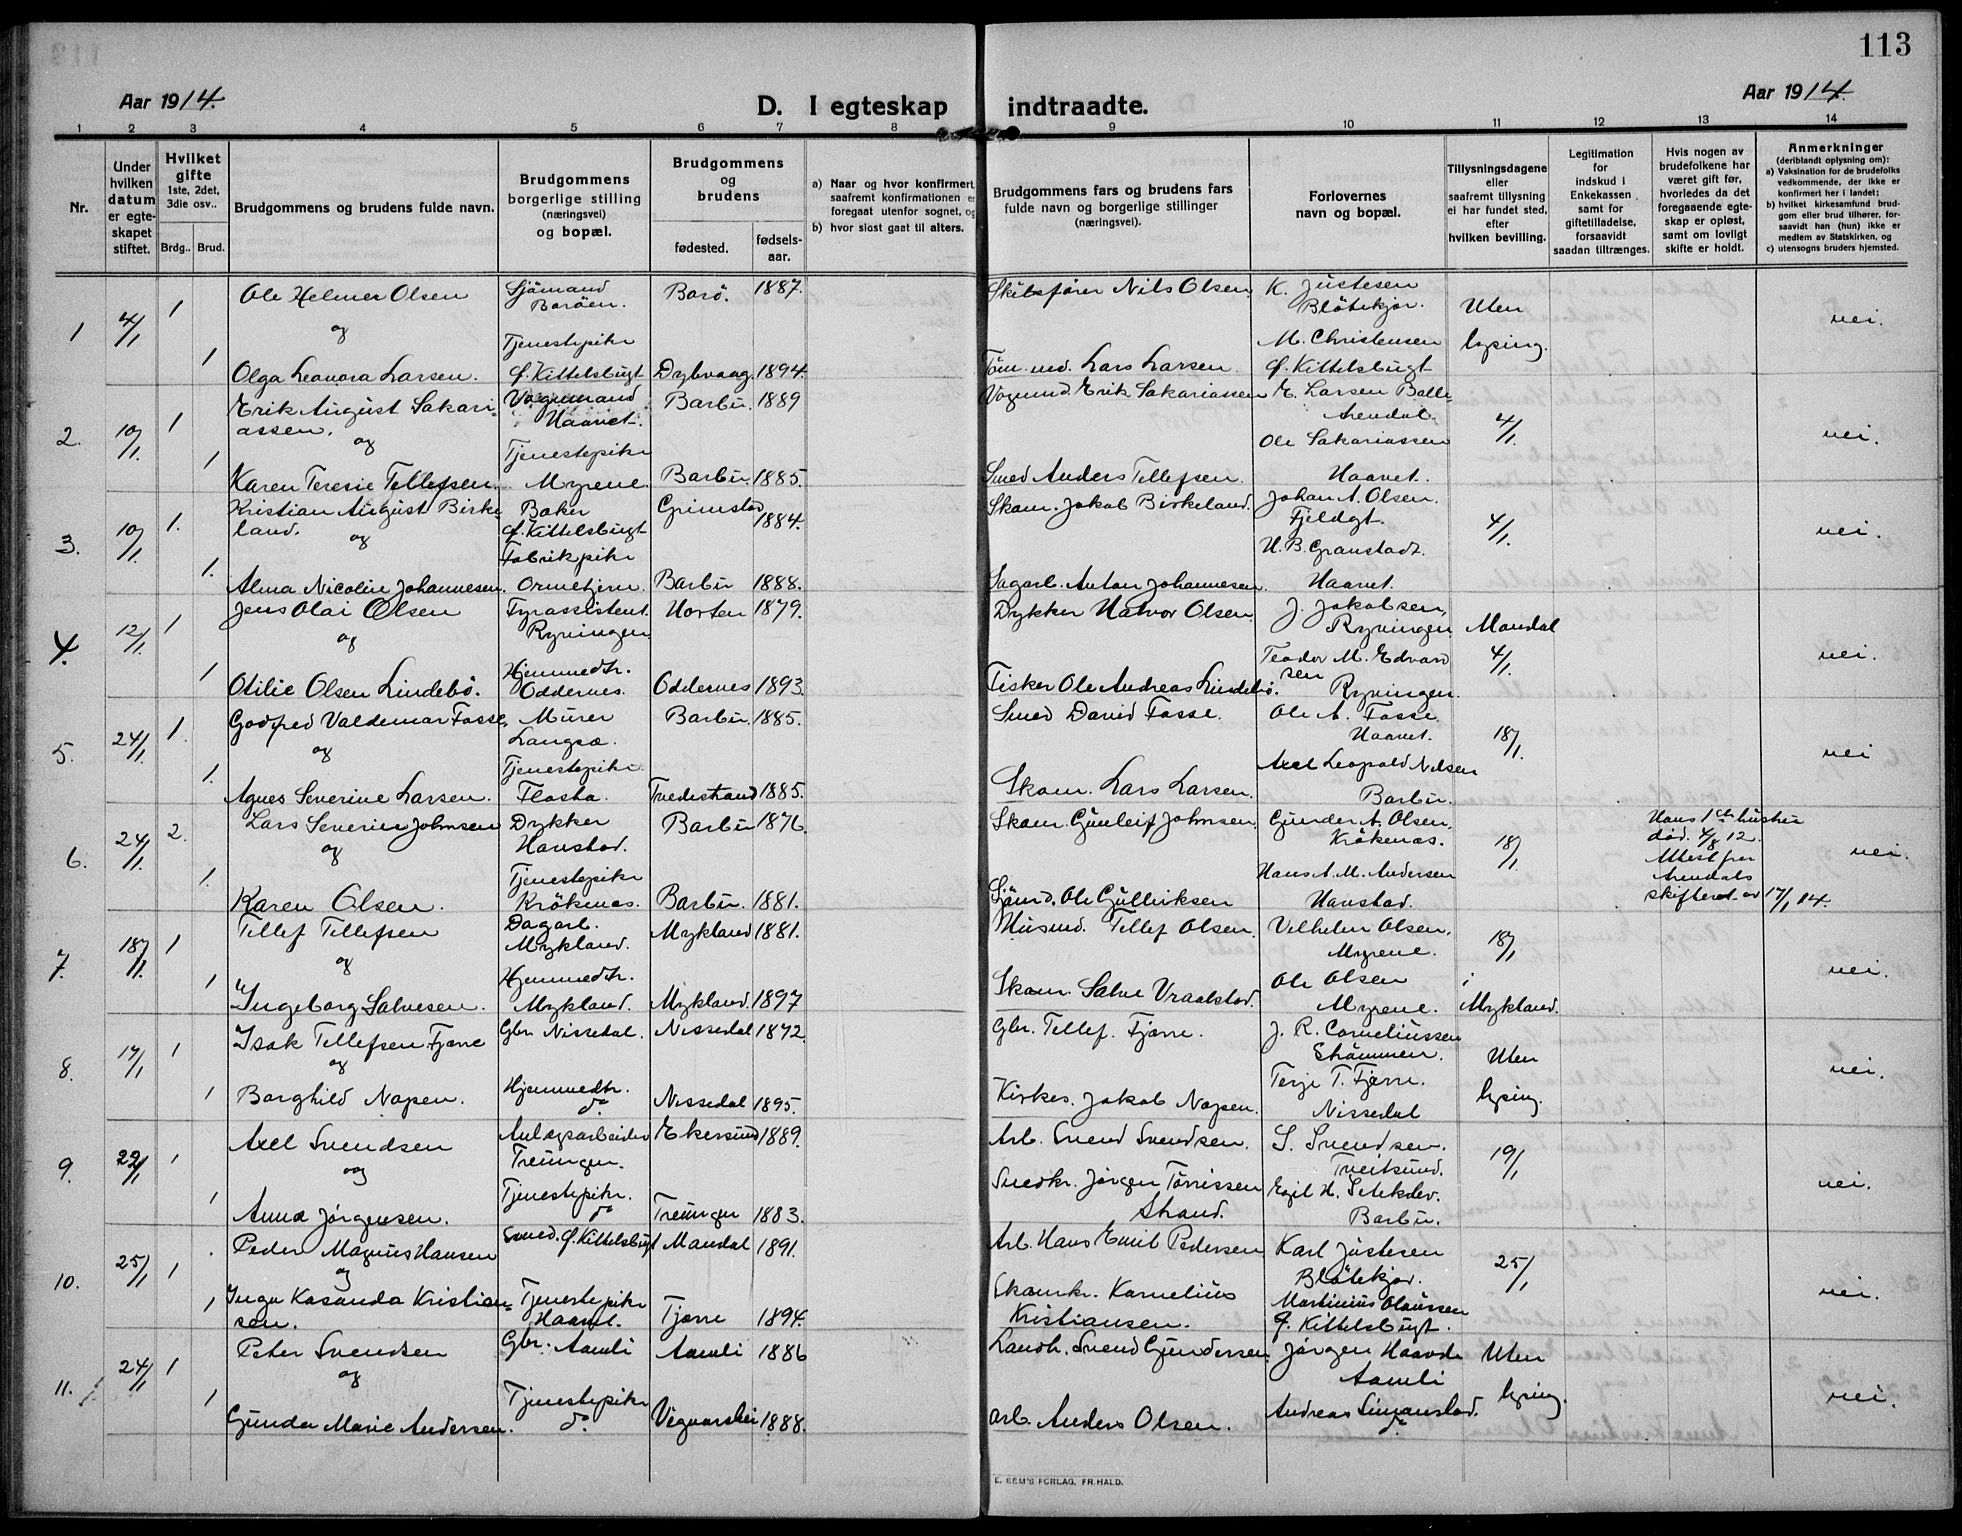 113
Aar 1914.
D. I egteskap indtraadte.
Aar 1914.
1 2 3 4 5 6 7 8 9 10 11 12 13 14
Nr.
Under hvilken datum er egteskapet stiftet.
Hvilket gifte 1ste, 2det, 3die osv..
Brdg..
Brud.
Brudgommens og brudens fulde navn.
Brudgommens borgerlige stilling (næringsvei) og bopæl.
Brudgommens og brudens
fødested.
fødselsaar.
a) Naar og hvor konfirmert, saafremt konfirmationen er foregaat utenfor sognet, og
b) hvor sidst gaat til alters.
Brudgommens fars og brudens fars fulde navn og borgerlige stillinger (næringsvei).
Forlovernes navn og bopæl.
Tillysningsdagene eller saafremt tillysning ei har fundet sted, efter hvilken bevilling.
Legitimation for indskud i Enkekassen samt for giftetilladelse, forsaavidt saadan tiltrænges.
Hvis nogen av brudefolkene har været gift før, hvorledes da det foregaaende egteskap er opløst, samt om lovligt skifte er holdt.
Anmerkninger (deriblandt oplysning om):
a) Vaksination for de brudefolks vedkommende, der ikke er konfirmert her i landet;
b) hvilket kirkesamfund brudgom eller brud tilhører, forsaavidt han (hun) ikke er medlem av Statskirken, og
c) utensogns bruders hjemsted.
1 4/1 1 Ole Helmer Olsen Sjömand Boröen. Borö. 1887. Skibsfører Nils Olsen. K. Justesen Blötekjær. Uten lysing. nei.
og
1 Olga Leonora Larsen. Tjenestepike G. Kittelsbugt Dybvaag. 1894. Töm.md. Lars Larsen. M. Christensen G. Kittelsbugt
2. 10/1 1 Erik August Sakariassen. Vognmand Haavet. Barbu. 1889 Vognmd. Erik Sakariassen E. Larsen Arendal. 4/1. nei.
og
1 Karen Teresie Tellefsen. Tjenestepike Myrene. Barbu 1885. Smed Anders Tellefsen. Ole Sakariassen Haavet.
3. 10/1 1. Kristian August Birkeland. Baker G. Kittelsbugt Grimstad 1884. Skom. Jakob Birkeland. Johan A. Olsen. Fjeldgt. 4/1. nei.
og
1. Alma Nicoline Johannesen. Fabrikpike Barbu 1888. Sagarb. Anton Johannesen. H. B. Granstadt. Haavet.
4. 12/1 1 Jens Olai Olsen Fyrassistent. Ryvingen Horten 1879. Dykker Halvor Olsen J. Jakobsen, Ryvingen Mandal 4/1. nei.
og
1 Otilie Olsen Lindebö. Hjemmedtr. Oddernes. Oddernes 1893. Fisker Ole Andreas Lindebö. Teodor M. Edvardsen Ryvingen.
5. 24/1 1. Godfred Valdemar Fosse, Murer Langsæ. Barbu. 1885. Smed David Fosse. Ole A. Fosse. Haavet. 18/1. nei
og
1. Agnes Severine Larsen. Tjenestepike. Flosta. Tvedestrand 1885. Skom. Lars Larsen. Axel Leopold Nilsen Barbu.
6. 24/1. 2. Lars Severin Johnsen Dykker Hanstad. Barbu 1876. Skom. Gunleif Johnsen. Gunder A. Olsen, Krökenæs. 18/1 Hans 1ste hustru död. 4/8 12. Attest fra Arendals skifteret av 17/1 14. nei.
og
1. Karen Olsen. Tjenestepike Krökenæs. Barbu. 1881. Sjömd. Ole Gulliksen Hans A. M. Andersen Hanstad.
7. 18/1. 1 Tellef Tellefsen Dagarb. Mykland. Mykland 1881. Husmd. Tellef Olsen. Vilhelm Olsen, Myrene. 18/1 i Mykland. nei.
og
1 Ingeborg Salvesen. Hjemmedtr. Mykland. Mykland. 1897 Skom. Salve Vraalstad. Ole Olsen Myrene.
8. 17/1 1 Isak Tellefsen Fjære Gbr. Nissedal. Nissedal 1872. Gbr. Tellef. Fjære. J. R. Corneliussen Strømmen. Uten lysing. nei.
og
1 Borghild Napen. Hjemmedtr. do. Nissedal 1895. Kirkes. Jakob Napen. Terje T. Fjære. Nissedal
9. 22/1 1 Axel Svendsen Anlægsarbeider Treungen. Ekersund 1889. Arb. Svend Svendsen. S. Svendsen. Tveitsund. 19/1 nei.
og
1 Anna Jörgensen. Tjenestepike. do Treungen 1883. Snedkr. Jörgen Törrissen Strand. Egil H. Barbu.
10. 25/1 1 Peder Magnus Hansen Smed. G. Kittelsbugt Mandal 1891. Arb. Hans Emil Pedersen Karl Justesen Blötekjær. 25/1 nei.
og
1 Inga Kasanda Kristiansen. Tjenestepike Haavet. Tjøme 1894. Skomkr. Kornelius Kristiansen. Martinius Olaussen G. Kittelsbugt.
11. 24/1 1 Peter Svendsen Gbr. Aamli Aamli 1886 Landh. Svend Gundersen. Jørgen Haavde Aamli Uten lysing. nei.
og
1 Gunda Marie Andersen. Tjenestepike do. Vegaarshei 1888. arb. Anders Olsen. Andreas Simonstad. do
E. SEM'S FORLAG, FR.HALD.